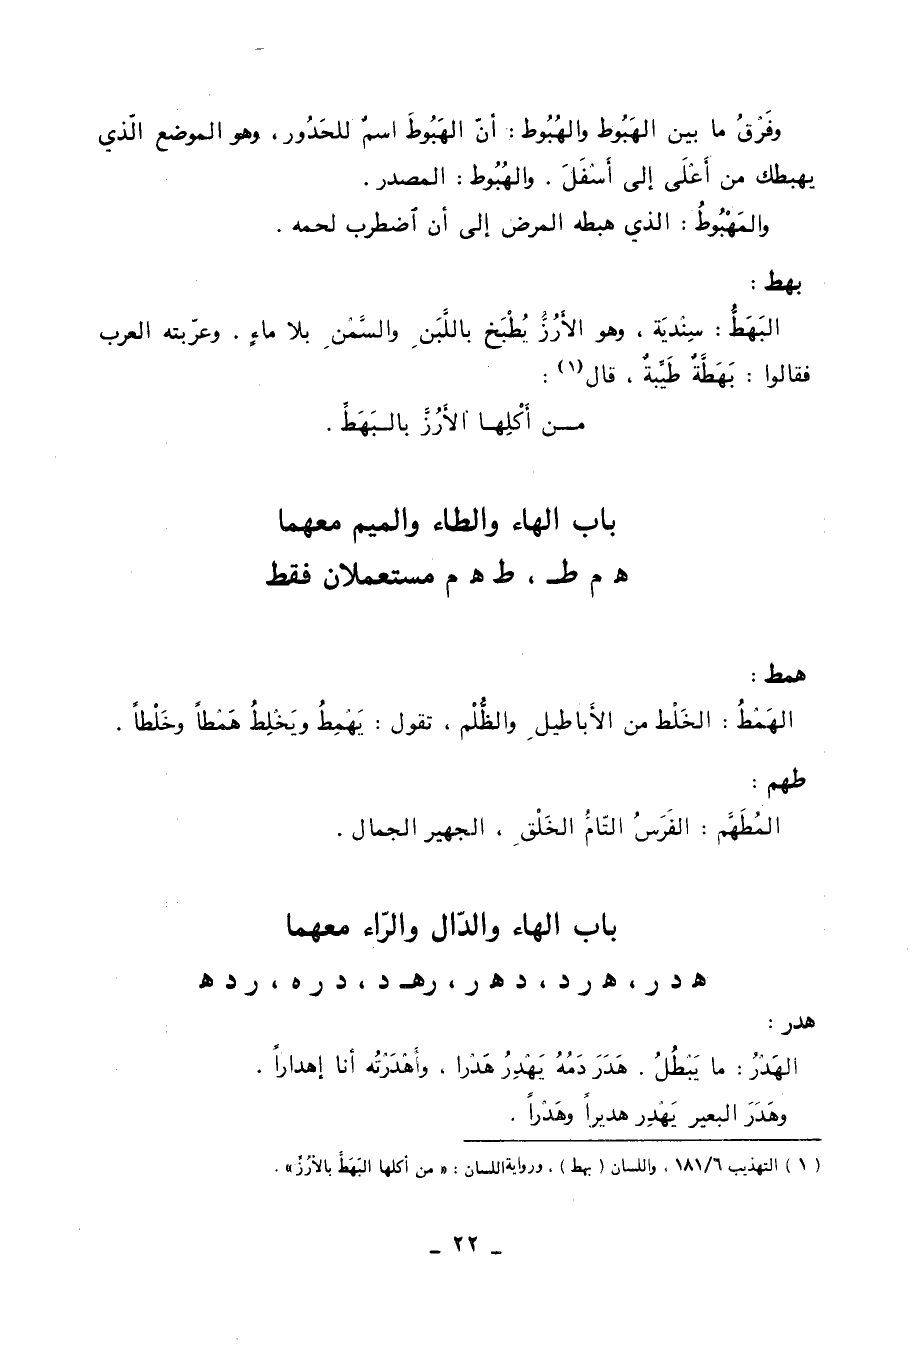 وفَرْقُ ما بين الهَبُوط والهُبُوط : أنّ الهَبُوطَ اسمٌ للحَدُور ، وهو الموضع الّذي
يهبطك من أَعْلَى إلى أَسْفَلَ . والهُبُوط : المصدر .
والمَهْبُوطُ : الذي هبطه المرض إلى أن ٱضطرب لحمه .
بهط :
البَهَطُّ : سِنْديَة ، وهو الأَرُزُّ يُطْبَخ باللَّبَنِ والسَّمْنِ بلا ماءٍ . وعرّبته العرب
فقالوا : بَهَطَّةٌ طَيِّبةٌ ، قال(١) :
مـن أَكْلِهـا الأَرُزَّ بالـبَهَطِّ .
باب الهاء والطاء والميم معهما
ﻫ م طـ ، ط ﻫ م مستعملان فقط
همط :
الهَمْطُ : الخَلْط من الأَباطيلِ والظُّلْم ، تقول : يَهْمِطُ ويَخْلِطُ هَمْطاً وخَلْطاً .
طهم :
المُطَهَّم : الفَرَسُ التّامُّ الخَلْقِ ، الجهير الجمال .
باب الهاء والدّال والرّاء معهما
ﻫ د ر ، ﻫ ر د ، د ﻫ ر ، رﻫـ د ، د ر ه ، ر د ﻫ
هدر :
الهَدْرُ : ما يَبْطُلُ . هَدَرَ دَمُهُ يَهْدِرُ هَدْرا ، وأَهْدَرْتُه أنا إهداراً .
وهَدَرَ البعير يَهْدِر هديراً وهَدْراً .
( ١ ) التهذيب ١٨١/٦ ، واللسان ( بهط ) ، ورواية اللسان : « من أكلها البَهَطَّ بالأرُزِّ» .
ـ ٢٢ ـ